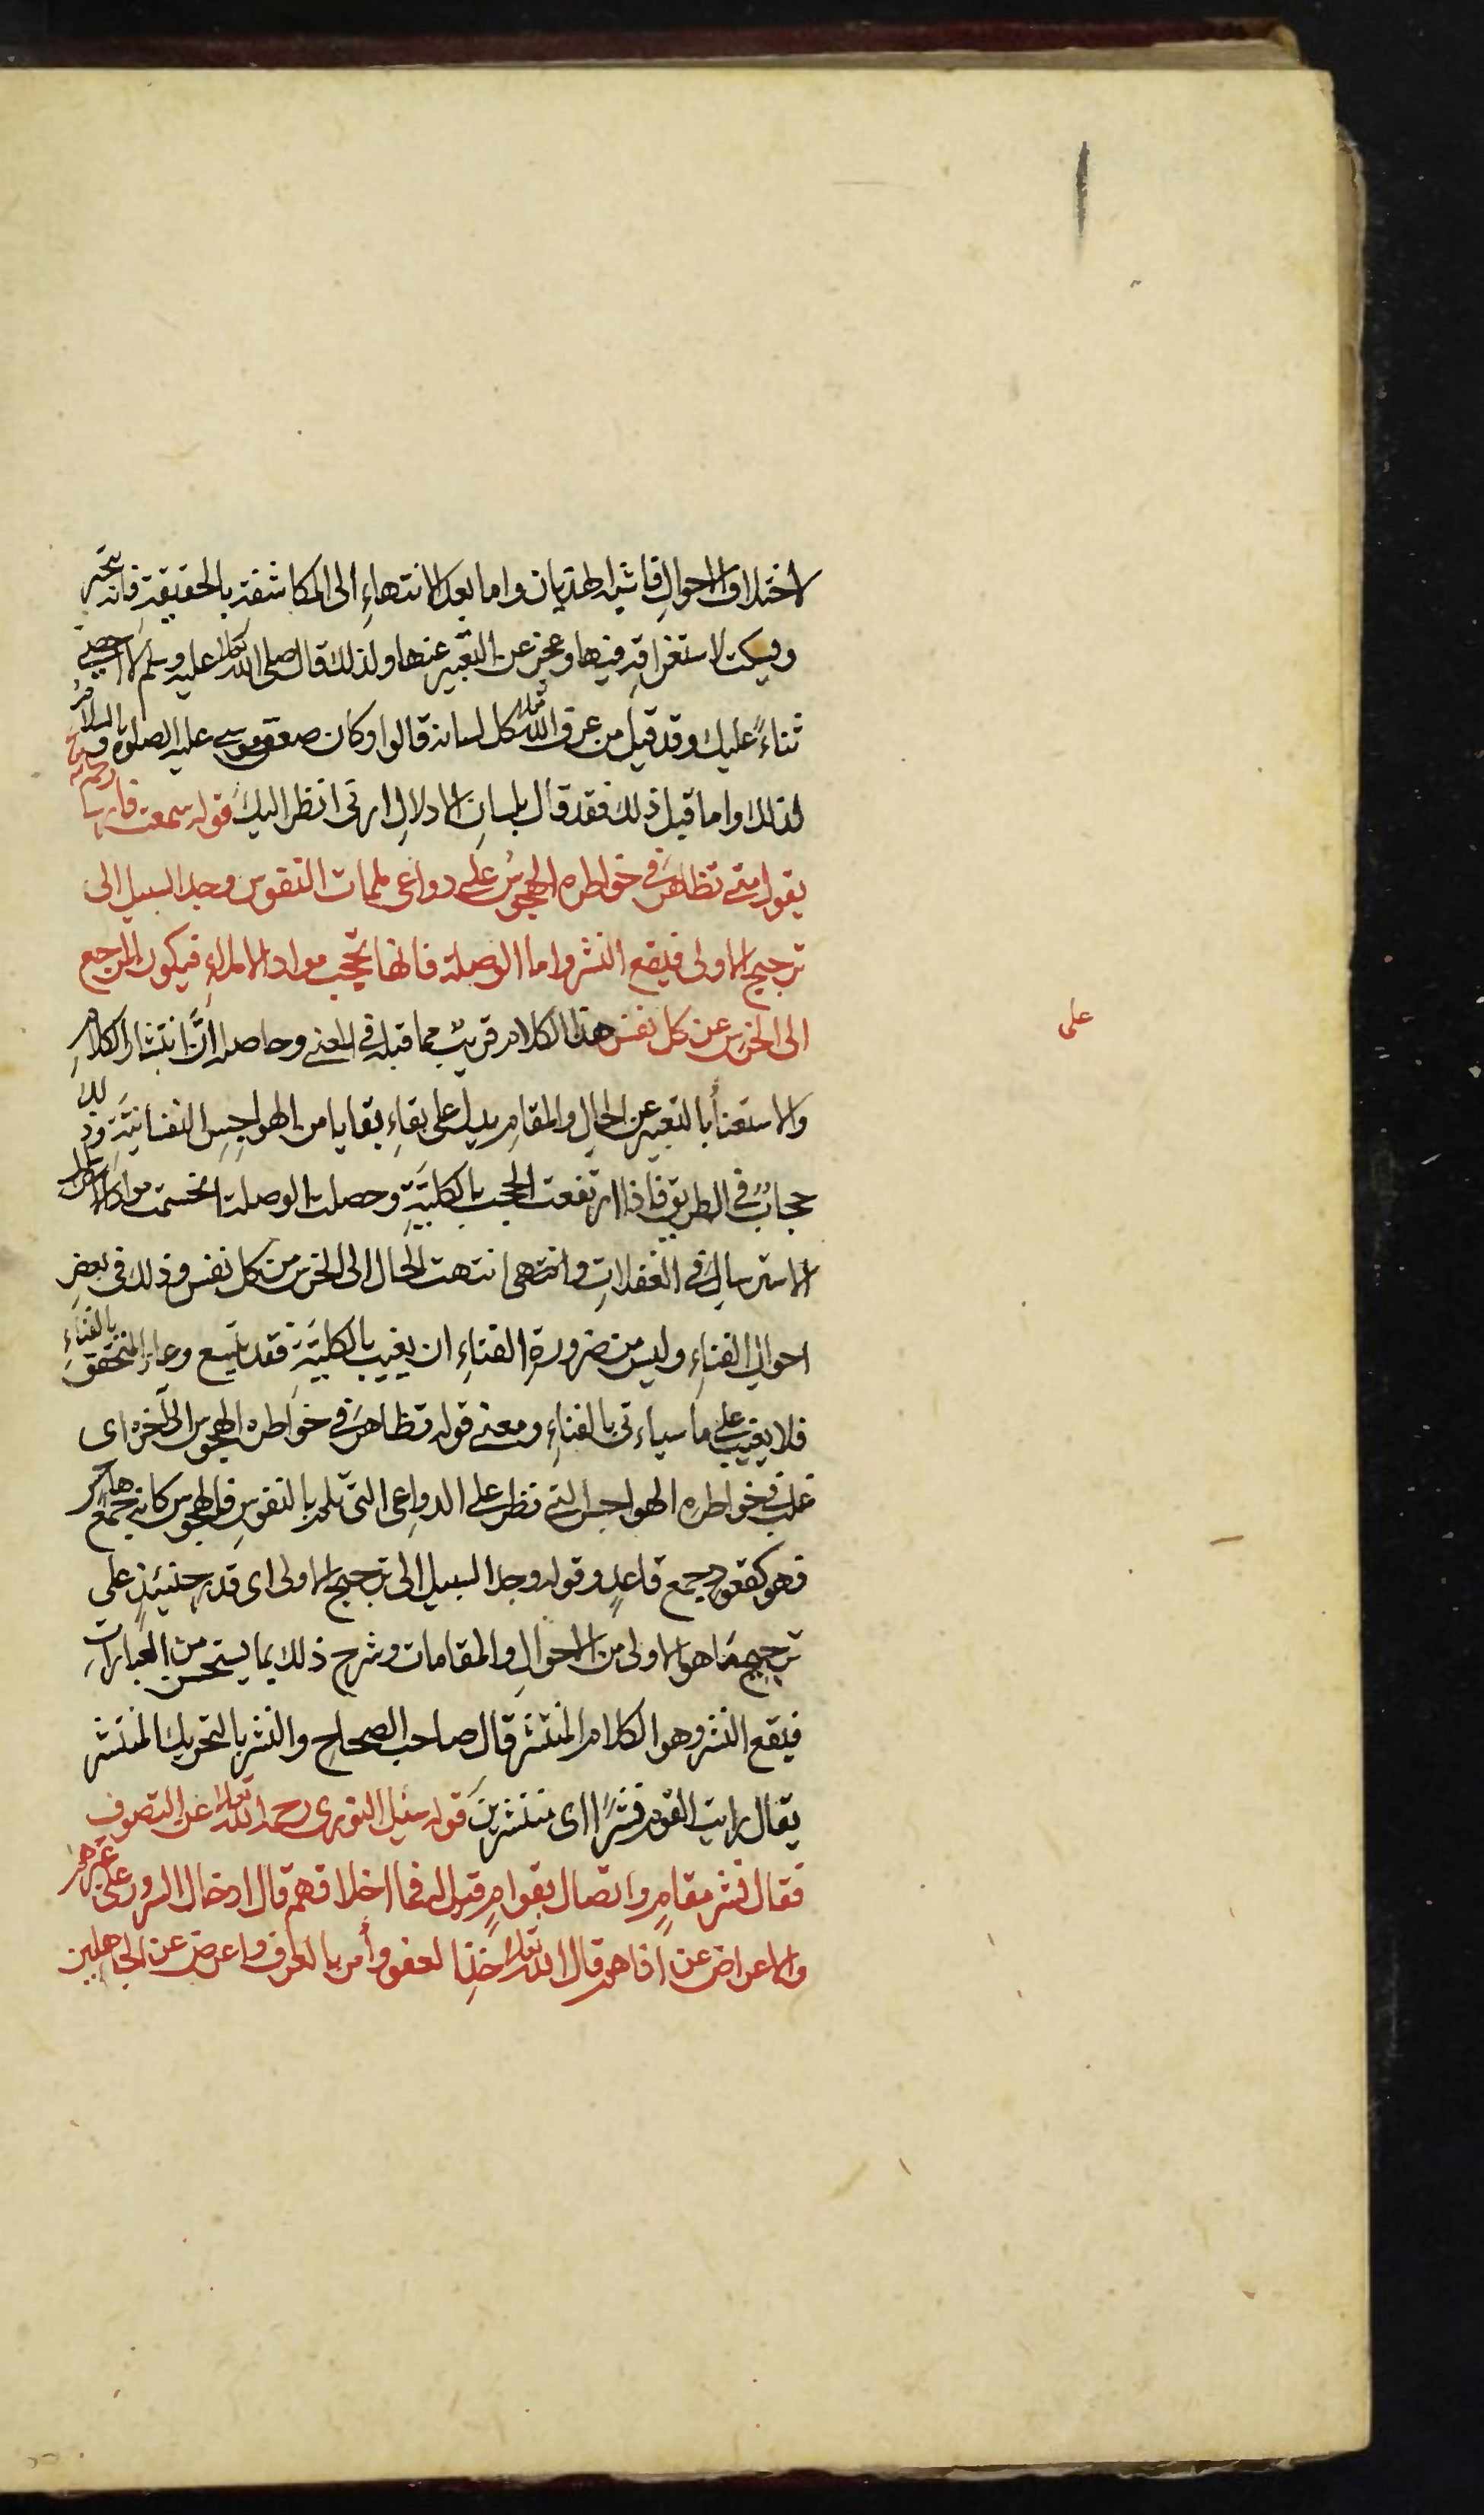 لاختلاف الاحوالِ فاشبه الهذيان واما بعد الانتهاءِ الى المكاشفة بالحقيقة فانه يتحير
ويسكت لاستغراقه فيها وعجزٍ عن التعبير عنها ولذلك قال صلى الله تعالى عليه وسلم لا احصى
ثناءً عليك وقد قيل من عرف الله تعالى كل لسانه قالوا وكان صعق موسى عليه الصلوة والسلام
لذلك واما قبل ذلك فقد قال بلسان الادلالِ ارنى انظر اليك قوله سمعت فارسا رحمه الله
يقول متى تظاهرَ فى خواطره الهجوسُ على دواعى ملمات النفوس وجد السبيل الى
ترجيح الاولى فيقع النشر واما الوصلة فانها تحجب مواد الاملاءِ فيكون المرجع
الى الخرس عن كل نفس هذا الكلام قريب مما قبله فى المعنى وحاصله انَّ انتشار الكلامِ
والاستعناأ بالتعبير عن الحالِ والمقامِ يدل على بقاءِ بقايا من الهواجسِ النفسانيّةِ وذلك
حجابٌ فى الطريق فاذا ارتفعت الحجب بالكلّيّةِ وحصلت الوصلة انحسمت مواد الاملاء
الاسترسالِ فى الغفلاتِ وانتهى انتهت الحال الى الخرس من كل نفس وذلك فى بعضِ
احوالِ الفناءِ وليس من ضرورة الفناءِ ان يغيب بالكليّة فقد يتسع وعاءُ المتحقق بالفناءِ
فلا يغيب على ما سياءتى بالفناءِ ومعنى قوله تظاهرَ فى خواطره الهجوس الى آخره اى
غلب فى خواطره الهواجس التى تطرا على الدواعى التى تلم بالنفوسِ فالهجوس كانه جمع هاجس
فهو كقعود جمع قاعدٍ وقوله وجد السبيل الى ترجيح الاولى اى قدر حينئذٍ على
ترجيح ما هو الاولى من الاحوالِ والمقامات وشرح ذلك بما يستحسن من العباراتِ
فيقع النشر وهو الكلام المنتشر قال صاحب الصحاحِ والنشر بالتحريك المنتشر
يقال رايت القوم نشرًا اى منتشرين قوله سئل النورى رحمه الله تعالى عن التصوف
فقال نشر مقامٍ واتصال بقوامٍ قيل له فما اخلاقهم قال ادخال السرور على غيرهم
والاعراض عن اذاهم قال الله تعالى خذِ العفو وأمر بالعرف واعرض عن الجاهلين
على